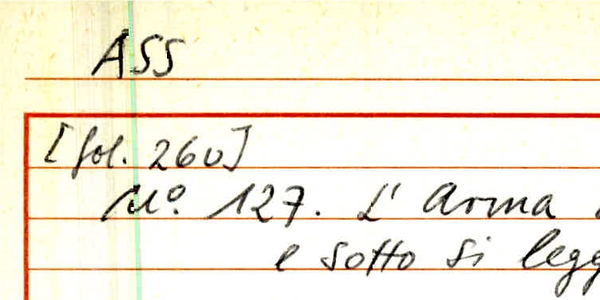 ASS
[fol. 260]
No. 127. L' Arma
e sotto si legg